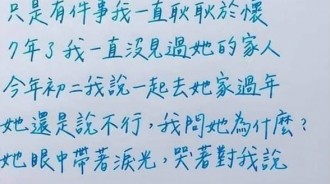 只是有件事我一直耿耿於懷
7年了我一直沒見過她的家人
今年初二我說一起去她家過年
她還是說不行，我問她為什麼？
她眼中帶著淚光，哭著對我說